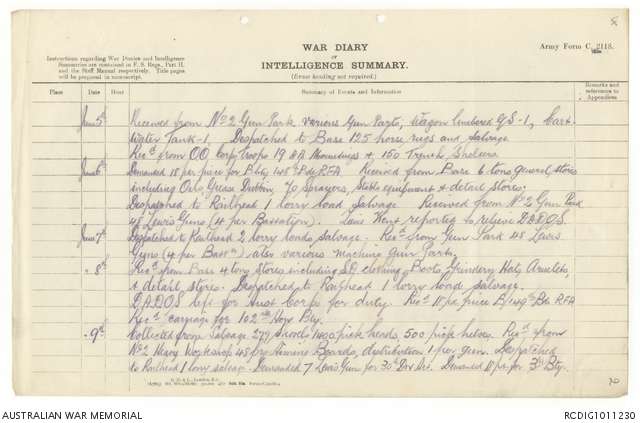 WAR DIARY
or
INTELLIGENCE SUMMARY.
(Erase heading not required.)
Army Form C. 2118.
Instructions regarding War Diaries and Intelligence
Summaries are contained in F. S. Regs., Part II.
and the Staff Manual respectively. Title pages
will be prepared in manuscript.
Place Date Hour Summary of Events and Information Remarks and references to Appendices
June 5th Received from No 2 Gun Park various Gun Parts, Wagon limbered G.S-1, Cart
Water Tank-1. Despatched to Base 125 horse rugs and salvage.
Recd from OO Corp Troops 19 AA Mountings & 150 Trench Shelters
June 6th Demanded 18 pdr piece for B bty 148th Bde RFA. Received from Base 6 tons general stores
including Oils, Grease Dubbin, 70 Sprayers, Stable equipment & detail stores.
Despatched to Railhead 1 lorry load Salvage. Received from No 2 Gun Park
48 Lewis Guns (4 per Battalion). reported to relieve DADOS.
June 7th Despatched to Railhead 2 lorry loads, salvage. Recd from Gun Park 48 Lewis
Guns (4 per Battn), also various machine Gun parts.
" 8th Recd from Base 4 tons stores including SD clothing, Boots, Grindery, Hats,
& detail stores. Despatched to Railhead 1 lorry load salvage.
DADOS left for Corps for duty. Recd 18 pdr piece B/149th Bde RFA
Recd carriage for 102nd How Bty.
" 9th Collected from Salvage 279 Shovels, 1400 pick heads, 500 pick helves. Recd from
No 2 Heavy Workshop 48 Aiming Boards, distribution 1 per gun. Despatched
to Railhead 1 lorry salvage. Demanded 7 Lewis Guns for 30th Div Art. Demanded 18 pdr for 3rd Bty.
AUSTRALIAN WAR MEMORIAL
RCDIG1011230